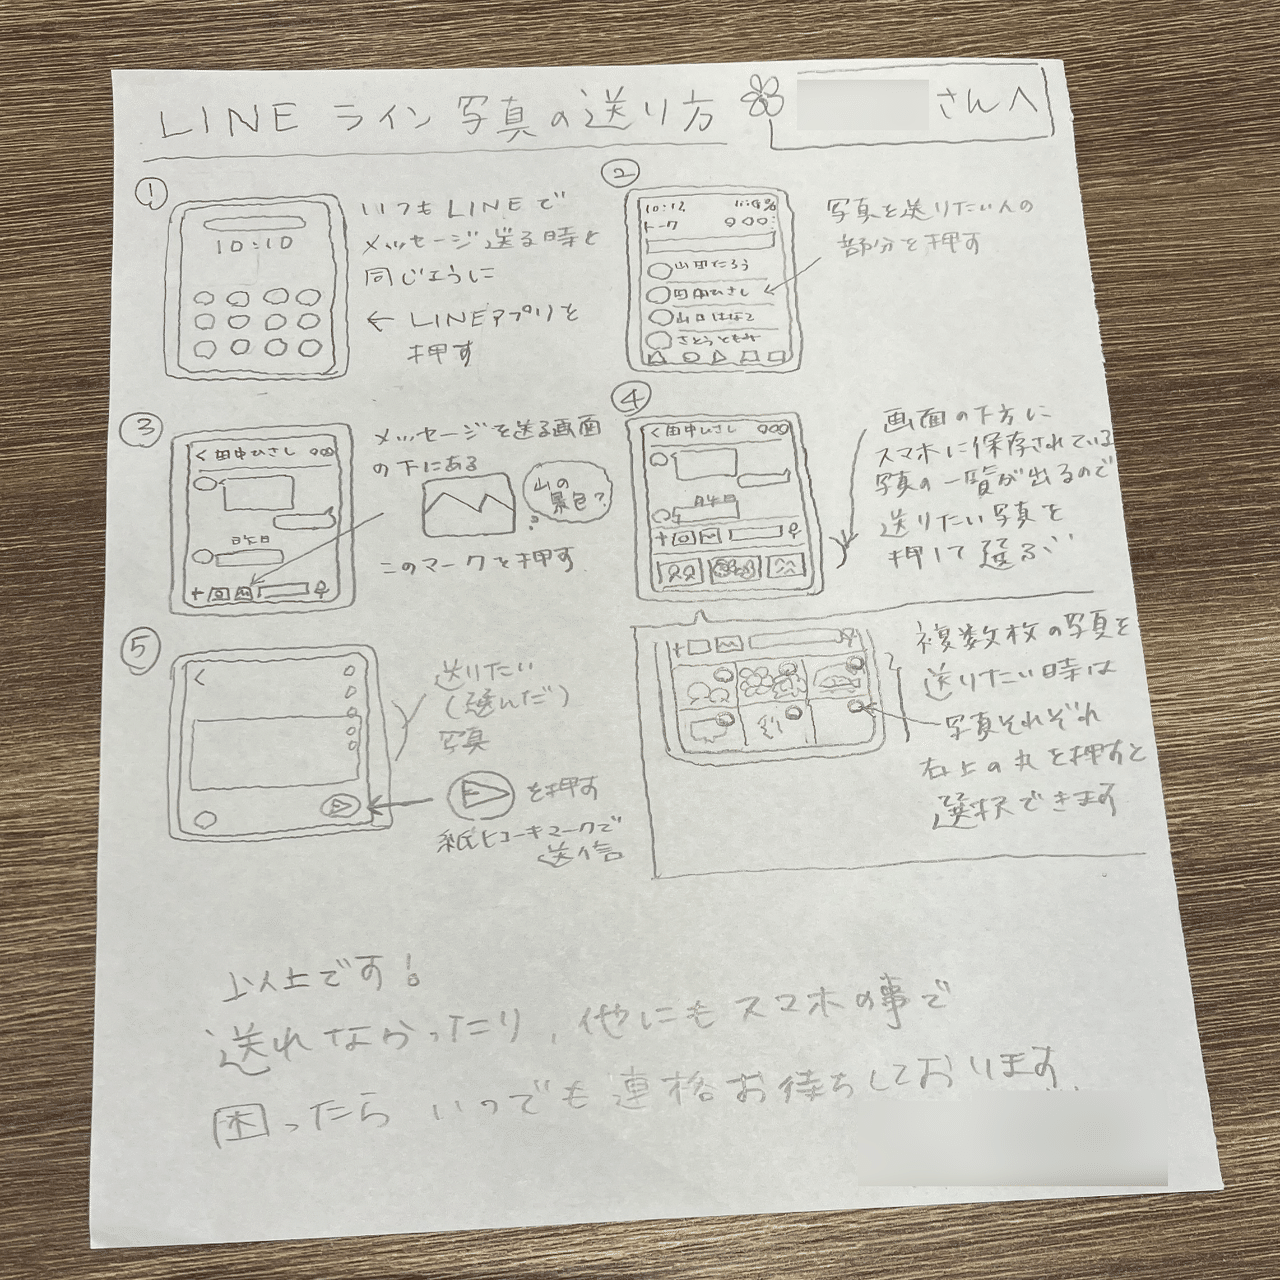 LINE ライン 写真の送り方
さんへ
①
10:10
いつもLINEで
メッセージ送る時と
同じように
← LINEアプリを
押す
②
10:12
トーク
山田たろう
田中ひさし
山口はなこ
さとうともみ
写真を送りたい人の
部分を押す
③
< 田中ひさし
昨日
+
メッセージを送る画面
の下にある
山の
景色?
このマークを押す
④
< 田中ひさし
昨日
+
画面の下方に
スマホに保存されている
写真の一覧が出るので
送りたい写真を
押して選ぶ
+
複数枚の写真を
送りたい時は
写真それぞれ
右上の丸を押すと
選択できます
⑤
<
送りたい
(選んだ)
写真
を押す
紙ヒコーキマークで
送信
以上です!
送れなかったり、他にもスマホの事で
困ったら いつでも連絡お待ちしております。